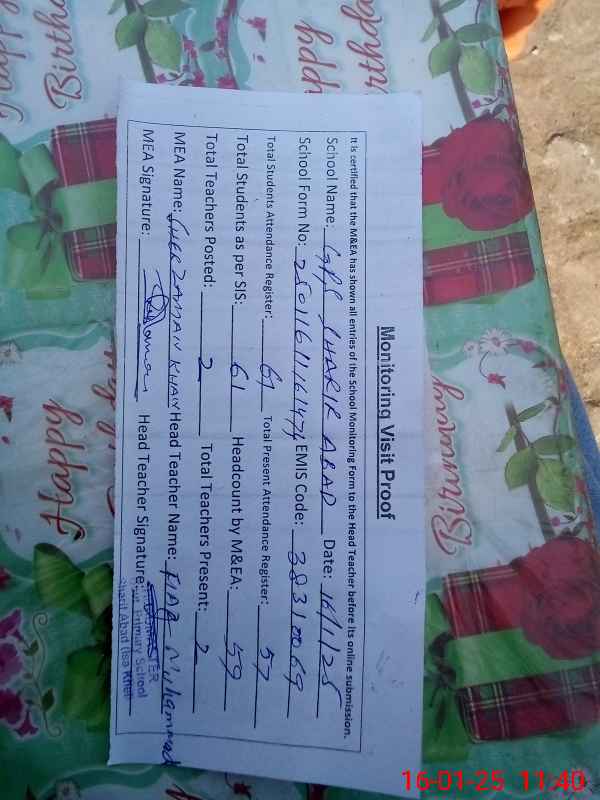 Monitoring Visit Proof
It is certified that the M&EA has shown all entries of the School Monitoring Form to the Head Teacher before its online submission.
School Name: GPS SHARIF ABAD Date: 16/1/25
School Form No: EMIS Code: 38310069
Total Students Attendance Register: 61 Total Present Attendance Register: 57
Total Students as per SIS: 61 Headcount by M&EA: 59
Total Teachers Posted: 2 Total Teachers Present: 2
MEA Name: SHER ZAMAN KHAN Head Teacher Name: Muhammad
MEA Signature: Head Teacher Signature:
HEADMASTER
Primary School
Sharif Abad (Isa Khel)
Happy
Birthday
Happy
Birthday
16-01-25 11:40